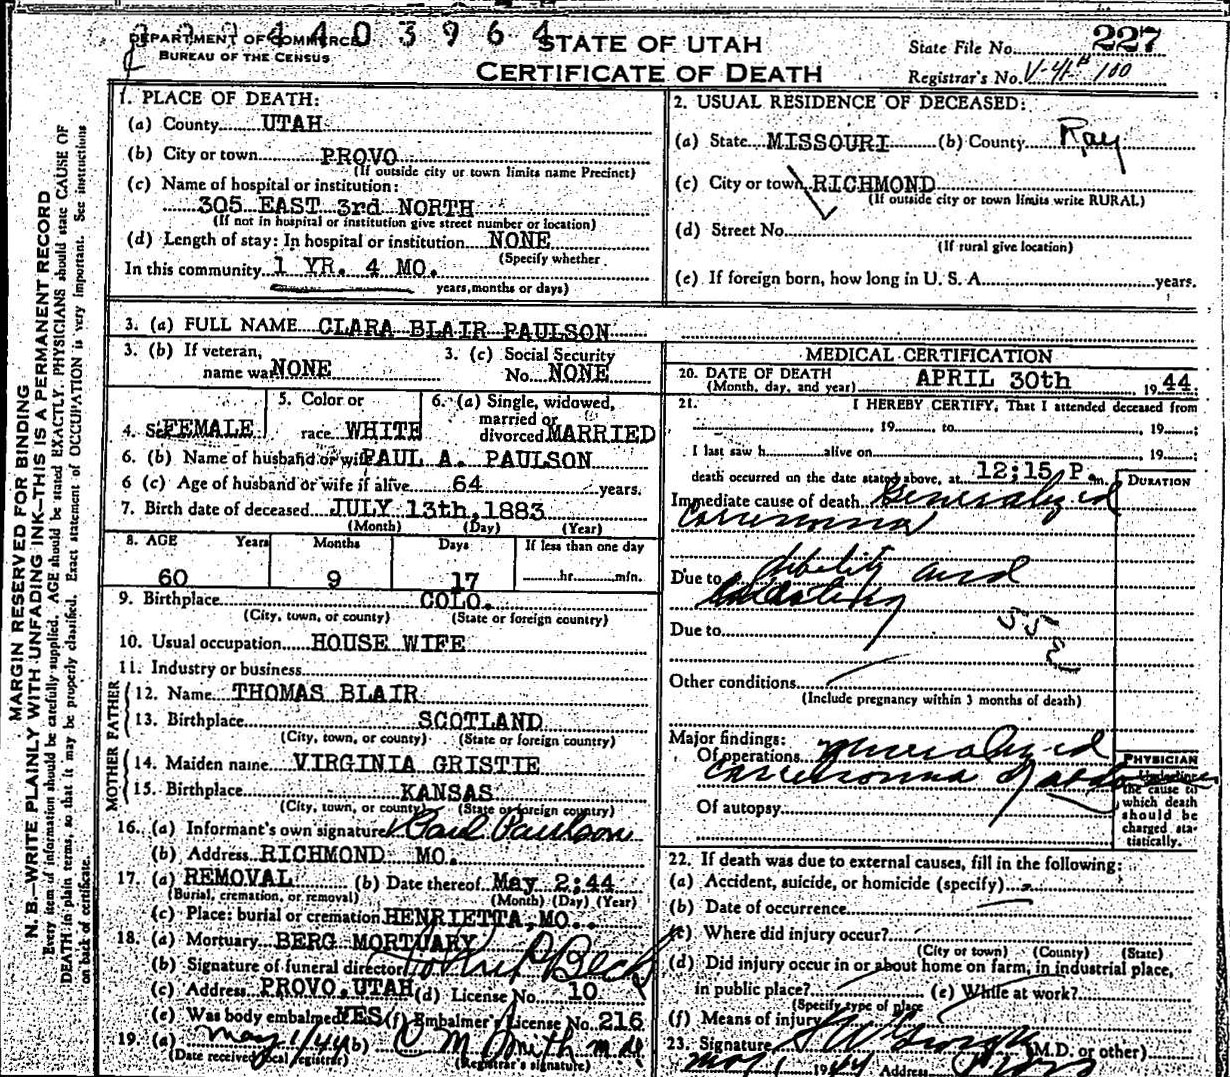 DEPARTMENT OF COMMERCE
BUREAU OF THE CENSUS
4403964
STATE OF UTAH
CERTIFICATE OF DEATH
State File No. 227
Registrar's No. V-41-B 100
1. PLACE OF DEATH:
(a) County UTAH
(b) City or town PROVO
(If outside city or town limits name Precinct)
(c) Name of hospital or institution:
305 EAST 3rd NORTH
(If not in hospital or institution give street number or location)
(d) Length of stay: In hospital or institution NONE
(Specify whether
In this community 1 YR. 4 MO.
years, months or days)
2. USUAL RESIDENCE OF DECEASED:
(a) State MISSOURI (b) County Ray
(c) City or town RICHMOND
(If outside city or town limits write RURAL)
(d) Street No.
(If rural give location)
(e) If foreign born, how long in U. S. A. years.
3. (a) FULL NAME CLARA BLAIR PAULSON
3. (b) If veteran,
name war NONE
3. (c) Social Security
No. NONE
4. Sex FEMALE
5. Color or
race WHITE
6. (a) Single, widowed,
married or
divorced MARRIED
6. (b) Name of husband or wife PAUL A. PAULSON
6 (c) Age of husband or wife if alive 64 years.
7. Birth date of deceased JULY 13th, 1883
(Month) (Day) (Year)
8. AGE Years Months Days If less than one day
60 9 17 hr. min.
9. Birthplace COLO.
(City, town, or county) (State or foreign country)
10. Usual occupation HOUSE WIFE
11. Industry or business
FATHER
12. Name THOMAS BLAIR
13. Birthplace SCOTLAND
(City, town, or county) (State or foreign country)
MOTHER
14. Maiden name VIRGINIA GRISTIE
15. Birthplace KANSAS
(City, town, or county) (State or foreign country)
16. (a) Informant's own signature Paul Paulson
(b) Address RICHMOND MO.
17. (a) REMOVAL (b) Date thereof May 2;44
(Burial, cremation, or removal) (Month) (Day) (Year)
(c) Place: burial or cremation HENRIETTA, MO.
18. (a) Mortuary BERG MORTUARY
(b) Signature of funeral director
(c) Address PROVO, UTAH (d) License No. 10
(e) Was body embalmed YES (f) Embalmer's License No. 216
19. (a) May 1/44 (b) C M Smith m d
(Date received local registrar) (Registrar's signature)
MEDICAL CERTIFICATION
20. DATE OF DEATH
(Month, day, and year) APRIL 30th 1944.
21. I HEREBY CERTIFY, That I attended deceased from
, 19 , to , 19 ;
I last saw h alive on , 19 ;
death occurred on the date stated above, at 12;15 P. m.
DURATION
Immediate cause of death Generalyzed
Carcinoma
Due to debility and
Due to
55E
Other conditions
(Include pregnancy within 3 months of death)
Major findings:
Of operations Generalyzed
Carcinoma of abdomen
Of autopsy
PHYSICIAN
Underline
the cause to
which death
should be
charged sta-
tistically.
22. If death was due to external causes, fill in the following:
(a) Accident, suicide, or homicide (specify)
(b) Date of occurrence
(c) Where did injury occur?
(City or town) (County) (State)
(d) Did injury occur in or about home on farm, in industrial place,
in public place? (e) While at work?
(Specify type of place
(f) Means of injury
23. Signature (M.D. or other)
May 1 1944 Address Provo
MARGIN RESERVED FOR BINDING
N. B.—WRITE PLAINLY WITH UNFADING INK—THIS IS A PERMANENT RECORD
Every item of information should be carefully supplied. AGE should be stated EXACTLY. PHYSICIANS should state CAUSE OF
DEATH in plain terms, so that it may be properly classified. Exact statement of OCCUPATION is very important. See instructions
on back of certificate.